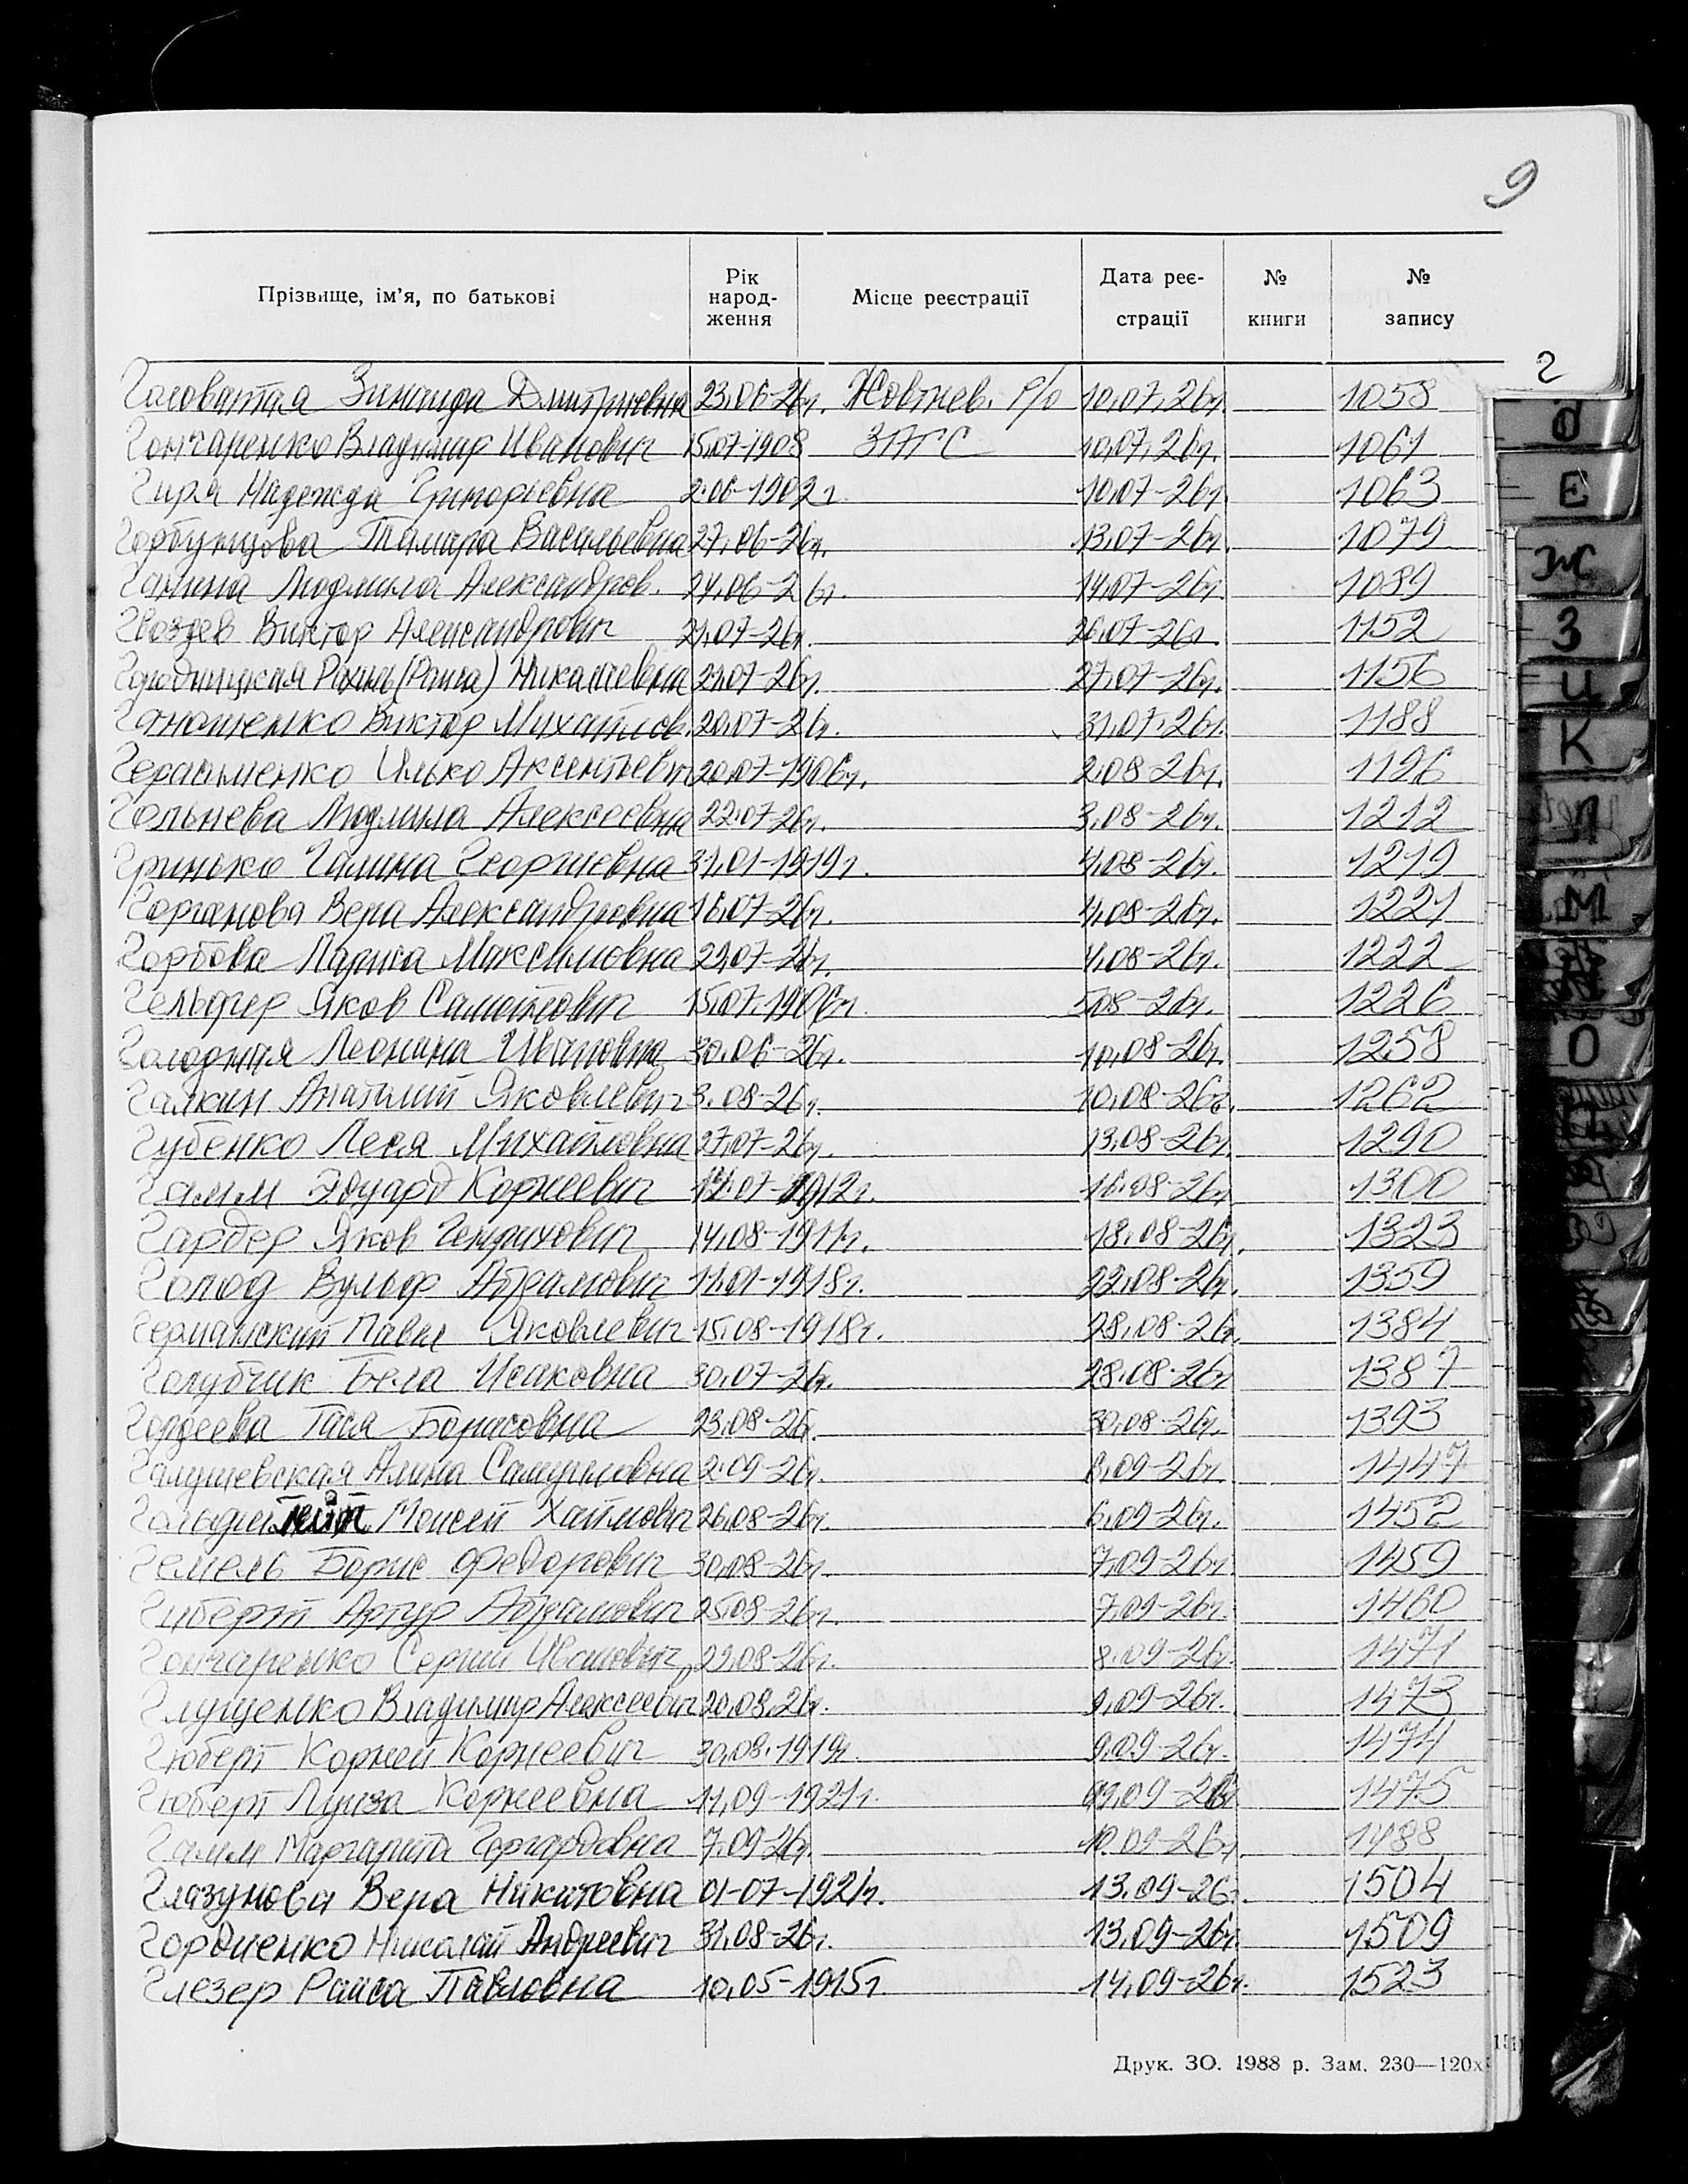 9
Прізвище, ім'я, по батькові Рік народ-ження Місце реєстрації Дата реє-страції № книги № запису
Г
Головатая Зинаида Дмитриевна 23.06-26г. Жовтнев. Р/о 10.07.26г. 1058
Гончаренко Владимир Иванович 15.07-1908 ЗАГС 10.07.26г. 1061
Гиря Надежда Григорьевна 2.06-1902г. 10.07-26г. 1063
Горбунцова Тамара Васильевна 27.06-26г. 13.07-26г. 1079
Ганина Людмила Александров. 24.06-26г. 14.07-26г. 1089
Гвоздев Виктор Александрович 21.07-26г. 26.07-26г. 1152
Городницкая Рахиль (Раиса) 21.07-26г. 27.07-26г. 1156
Виктор Михайлов. 20.07-26г. 31.07.26г. 1188
Герасименко Илько Аксентьевич 20.07-1906г. 2.08-26г. 1196
Гольнева Людмила Алексеевна 22.07-26г. 3.08-26г. 1212
Гринько Галина Георгиевна 31.01-1919г. 4.08-26г. 1219
Горганова Вера Александровна 16.07-26г. 4.08-26г. 1221
Горбова Лариса Максимовна 29.07-26г. 4.08-26г. 1222
Яков 15.07.1906г. 5.08-26г. 1226
Голодная Леонина Ивановна 30.06-26г. 10.08-26г. 1258
Галкин Анатолий Яковлевич 3.08-26г. 10.08-26г. 1262
Губенко Леся Михайловна 27.07-26г. 13.08-26г. 1290
Гамм Эдуард Корнеевич 14.07-1912г. 16.08-26г. 1300
Гардер Яков Генрихович 14.08-1911г. 18.08-26г. 1323
Голод Вульф Абрамович 11.01-1918г. 22.08-26г. 1359
Германский Павел Яковлевич 15.08-1918г. 28.08-26г. 1384
Голубчик Бела Исаковна 30.07-26г. 28.08-26г. 1387
Гордеева Тася Борисовна 23.08-26г. 30.08-26г. 1393
Галушевская Алина Самуиловна 2.09-26г. 6.09-26г. 1447
Моисей Хаймович 26.08-26г. 6.09-26г. 1452
Гемель Борис Федорович 30.08-26г. 7.09-26г. 1459
Гиберт Артур Абрамович 25.08-26г. 7.09-26г. 1460
Гончаренко Сергий Иванович 29.08-26г. 8.09-26г. 1471
Глущенко Владимир Алексеевич 20.08.26г. 9.09-26г. 1473
Гюберт Корней Корнеевич 30.08.1919г. 9.09-26г. 1474
Гюберт Луиза Корнеевна 11.09-1921г. 09.09-26г. 1475
Гамм Маргарита Гергардовна 7.09-26г. 10.09-26г. 1488
Глазунова Вера Никитовна 01-07-1921г. 13.09-26г. 1504
Гордиенко Николай Андреевич 31.08-26г. 13.09-26г. 1509
Глезер Раиса Павловна 10.05-1915г. 14.09-26г. 1523
Друк. ЗО. 1988 р. Зам. 230—120х
Д
Е
Ж
З
И
К
Л
М
О